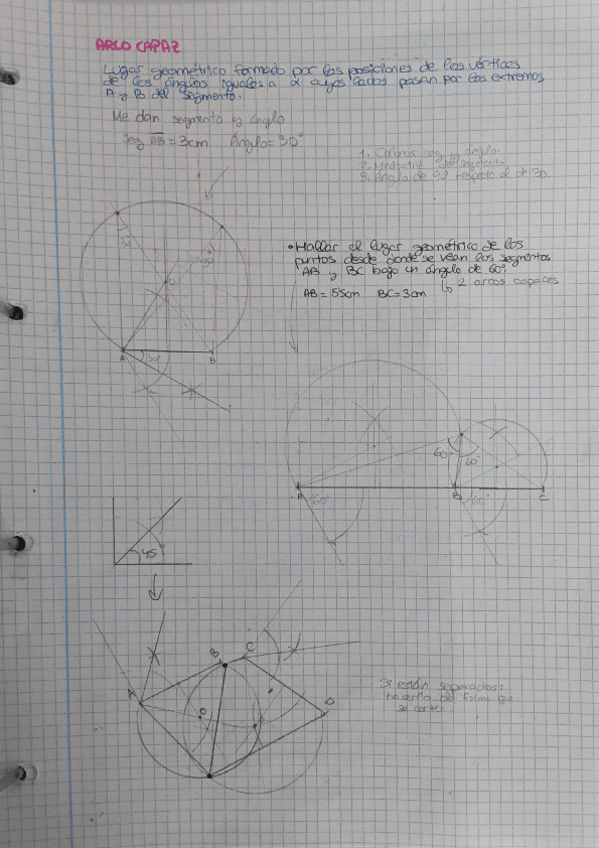 ARCO CAPAZ
Lugar geométrico formado por las posiciones de los vértices
de los ángulos iguales a α cuyos lados pasan por los extremos
A y B del segmento.
Me dan segmento y ángulo
Seg AB = 3cm Ángulo = 30°
1. Coloras seg y ángulo
2. Mediatriz del segmento
3. Ángulo de 90 respecto al de 30
30°
30°
O
A
30°
B
• Hallar el lugar geométrico de los
puntos desde donde se vean los segmentos
AB y BC bajo un ángulo de 60°
↳ 2 arcos capaces
AB = 5'5cm BC = 3cm
60°
60°
A
60°
B
60°
C
45°
B
C
A
O
D
Si están separados:
hacerlo de forme que
se corten